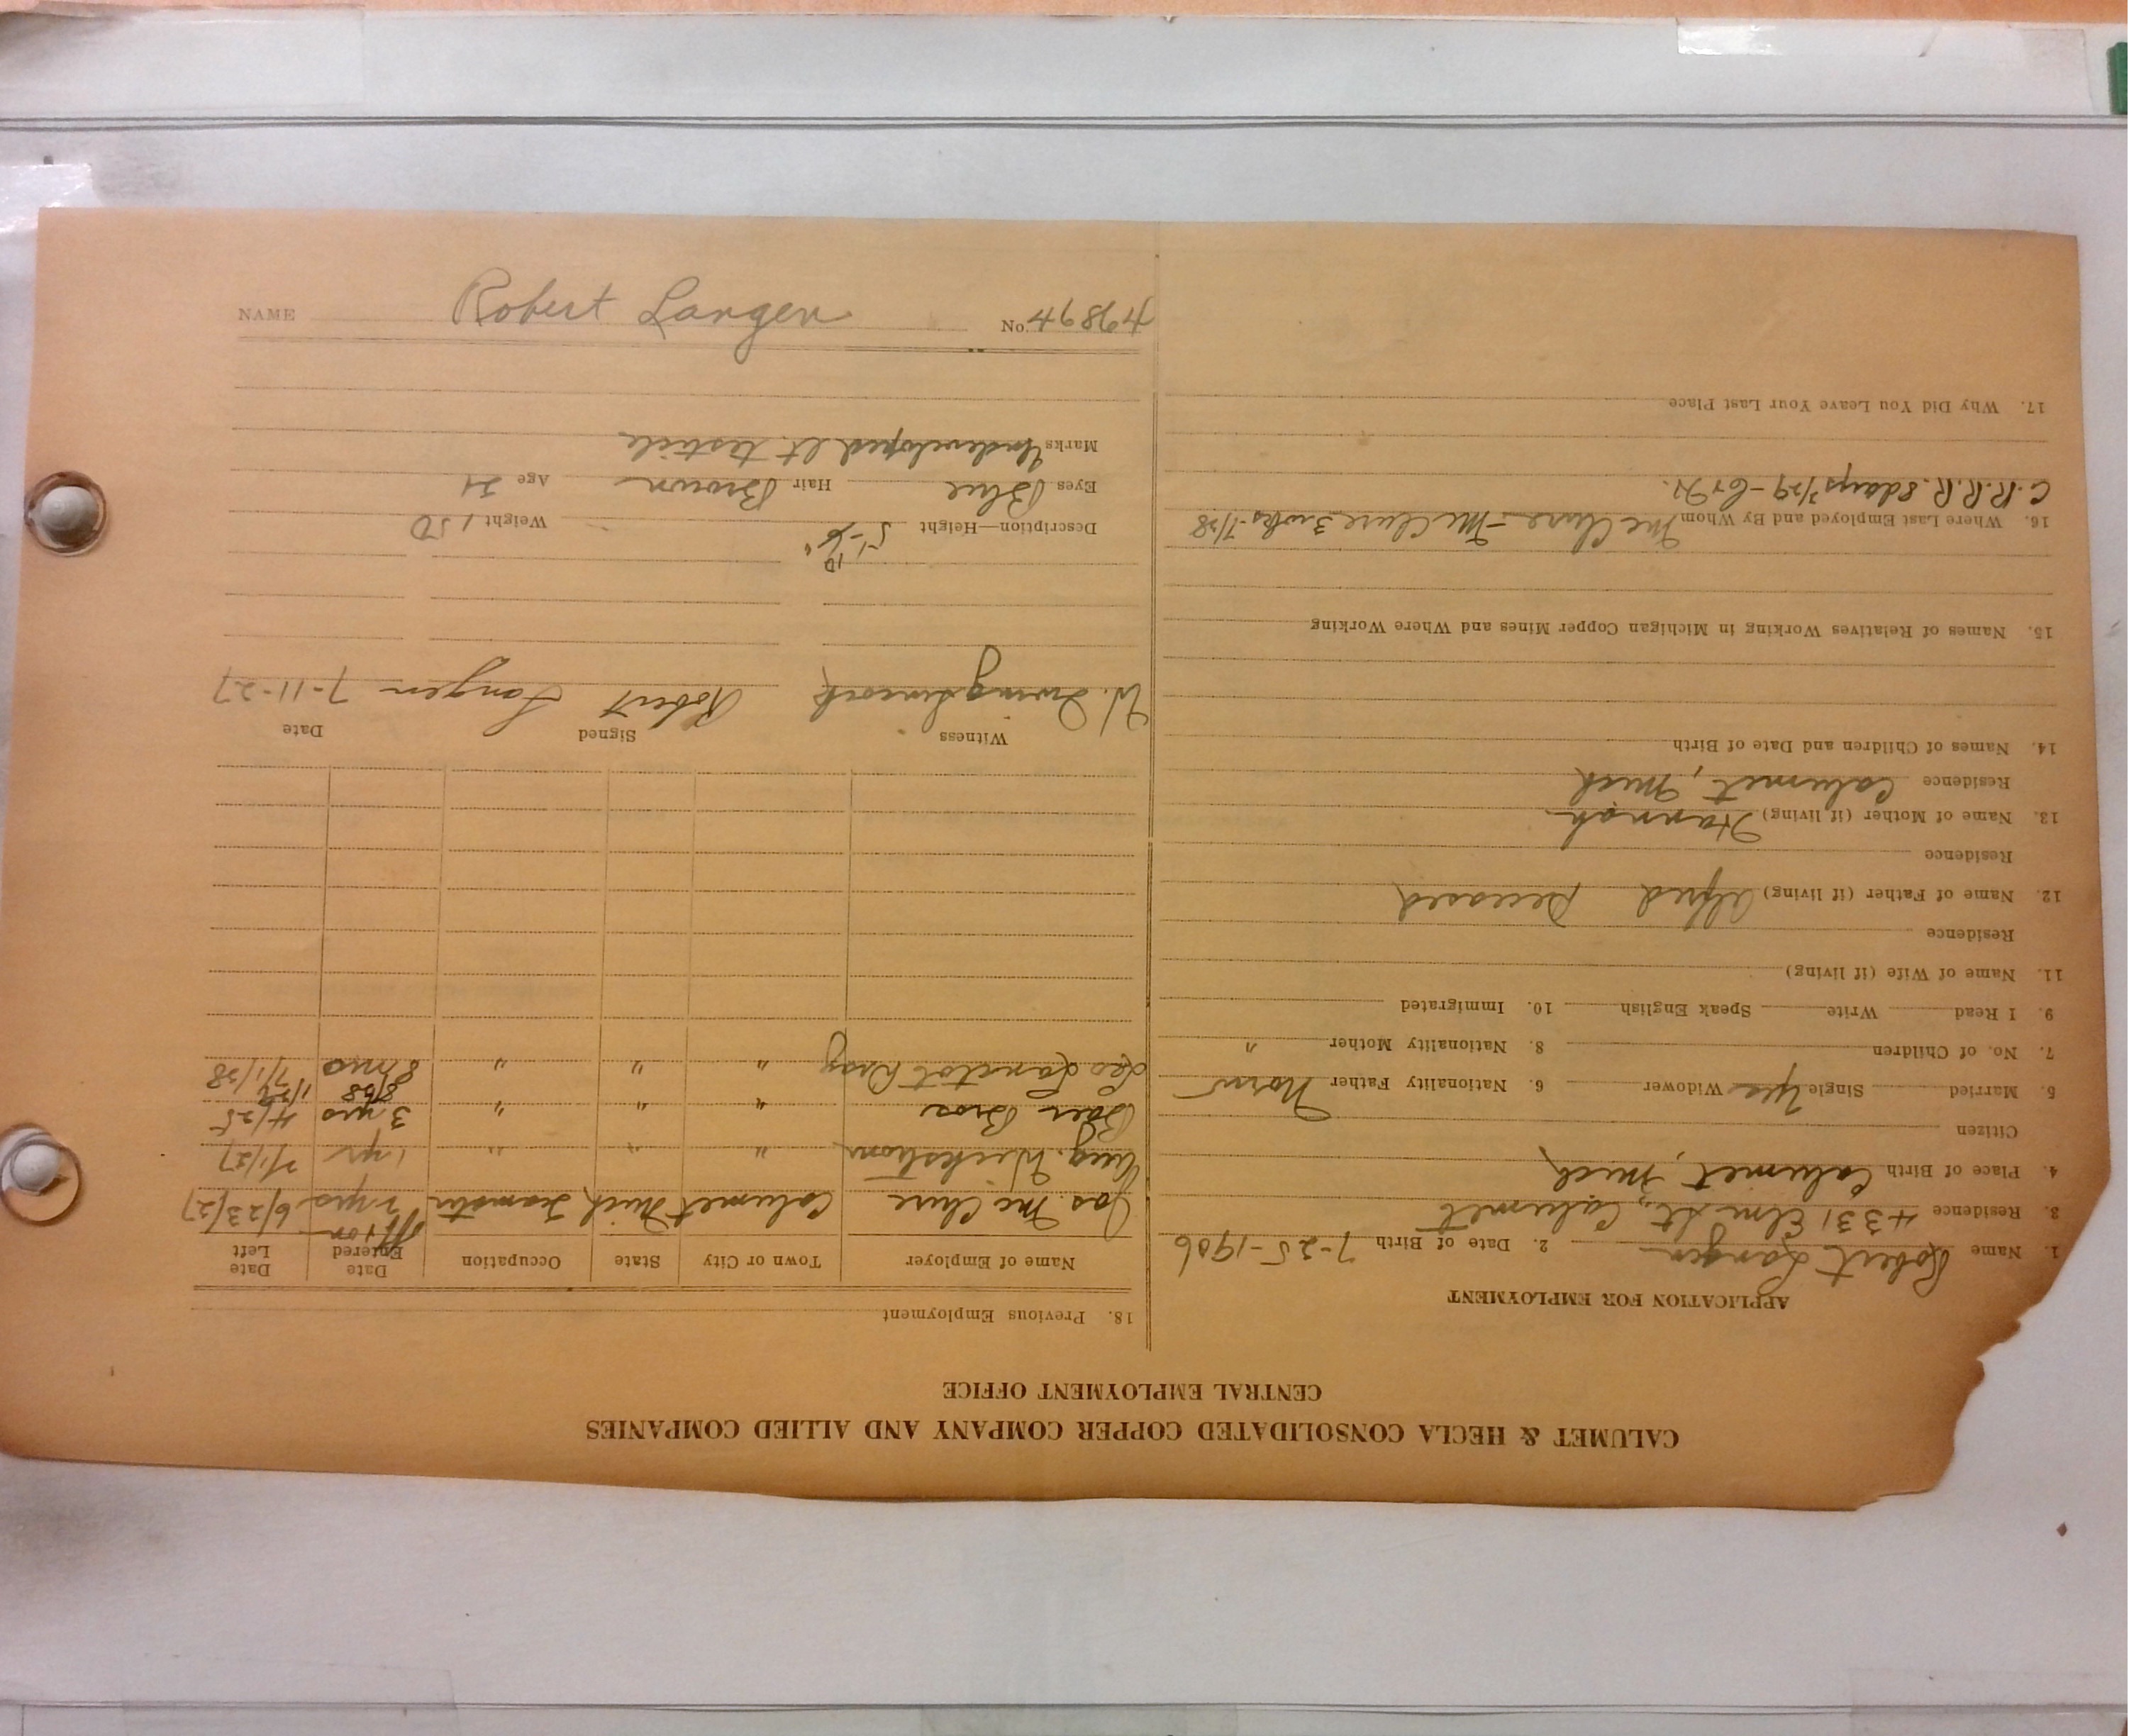 CALUMET & HECLA CONSOLIDATED COPPER COMPANY AND ALLIED COMPANIES
CENTRAL EMPLOYMENT OFFICE
APPLICATION FOR EMPLOYMENT
1. Name Robert Langen 2. Date of Birth 7-25-1906
3. Residence 4331 Elm St., Calumet
4. Place of Birth Calumet, Mich
Citizen
5. Married Single Yes Widower 6. Nationality Father Norw
7. No. of Children 8. Nationality Mother "
9. I Read Write Speak English 10. Immigrated
11. Name of Wife (if living)
Residence
12. Name of Father (if living) Alfred Deceased
Residence
13. Name of Mother (if living) Hannah
Residence Calumet, Mich
14. Names of Children and Date of Birth
15. Names of Relatives Working in Michigan Copper Mines and Where Working
16. Where Last Employed and By Whom McClure - McClure 3 wks - 1/28
C.R.R.R. 8 days 3/29 -
17. Why Did You Leave Your Last Place
18. Previous Employment
Name of Employer Town or City State Occupation Date Entered Date Left
Jas. McClure Calumet Mich Teamster off & on 2 yrs 6/23/27
Aug. " " " 1 yr 7/1/27
Baer Bros " " " 3 yrs 4/25
Leo Lanctot Dray " " " 8 mos 7/1/38
Witness Signed Date
W. Robert Langen 7-11-27
Description—Height 5'- 10" Weight 150
Eyes Blue Hair Brown Age 21
Marks Undeveloped lt. testicle
NAME Robert Langen No. 46894